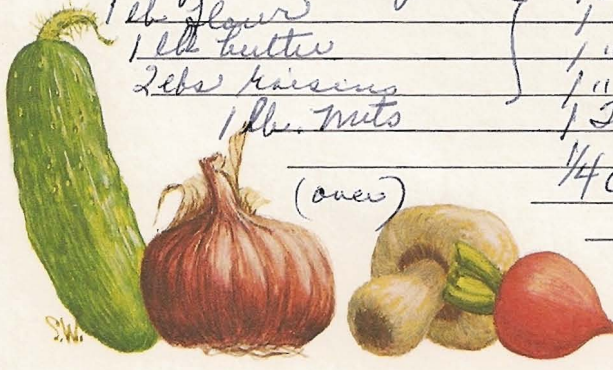 1 lb. flour
1 lb butter
2lbs raisins 1 "
1 lb. nuts 1
1/4
(over)
S.W.